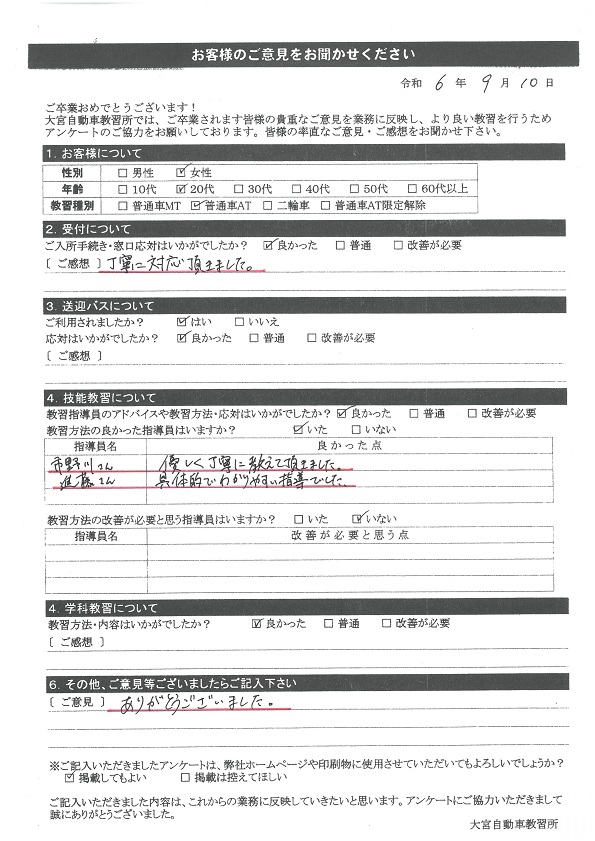 お客様のご意見をお聞かせください
令和 6 年 9 月 10 日
ご卒業おめでとうございます！
大宮自動車教習所では、ご卒業されます皆様の貴重なご意見を業務に反映し、より良い教習を行うため
アンケートのご協力をお願いしております。皆様の率直なご意見・ご感想をお聞かせ下さい。
1. お客様について
性別 □ 男性 ☑ 女性
年齢 □ 10代 ☑ 20代 □ 30代 □ 40代 □ 50代 □ 60代以上
教習種別 □ 普通車MT ☑ 普通車AT □ 二輪車 □ 普通車AT限定解除
2. 受付について
ご入所手続き・窓口応対はいかがでしたか？ ☑ 良かった □ 普通 □ 改善が必要
〔 ご感想 〕 丁寧に対応頂きました。
3. 送迎バスについて
ご利用されましたか？ ☑ はい □ いいえ
応対はいかがでしたか？ ☑ 良かった □ 普通 □ 改善が必要
〔 ご感想 〕
4. 技能教習について
教習指導員のアドバイスや教習方法・応対はいかがでしたか？ ☑ 良かった □ 普通 □ 改善が必要
教習方法の良かった指導員はいますか？ ☑ いた □ いない
指導員名 良かった点
市野川さん 優しく丁寧に教えて頂きました。
進藤さん 具体的でわかりやすい指導でした。
教習方法の改善が必要と思う指導員はいますか？ □ いた ☑ いない
指導員名 改善が必要と思う点
4. 学科教習について
教習方法・内容はいかがでしたか？ ☑ 良かった □ 普通 □ 改善が必要
〔 ご感想 〕
6. その他、ご意見等ございましたらご記入下さい
〔 ご意見 〕 ありがとうございました。
※ご記入いただきましたアンケートは、弊社ホームページや印刷物に使用させていただいてもよろしいでしょうか？
☑ 掲載してもよい □ 掲載は控えてほしい
ご記入いただきました内容は、これからの業務に反映していきたいと思います。アンケートにご協力いただきまして
誠にありがとうございました。
大宮自動車教習所